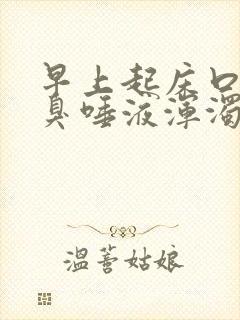 早上起床口
臭唾液浑浊
温蓍姑娘